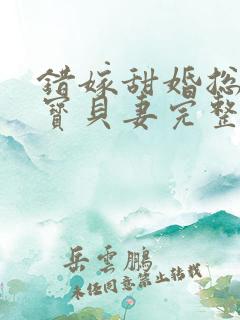 錯嫁甜婚总
寶貝妻完整
岳雲鵬
未经同意禁止转载